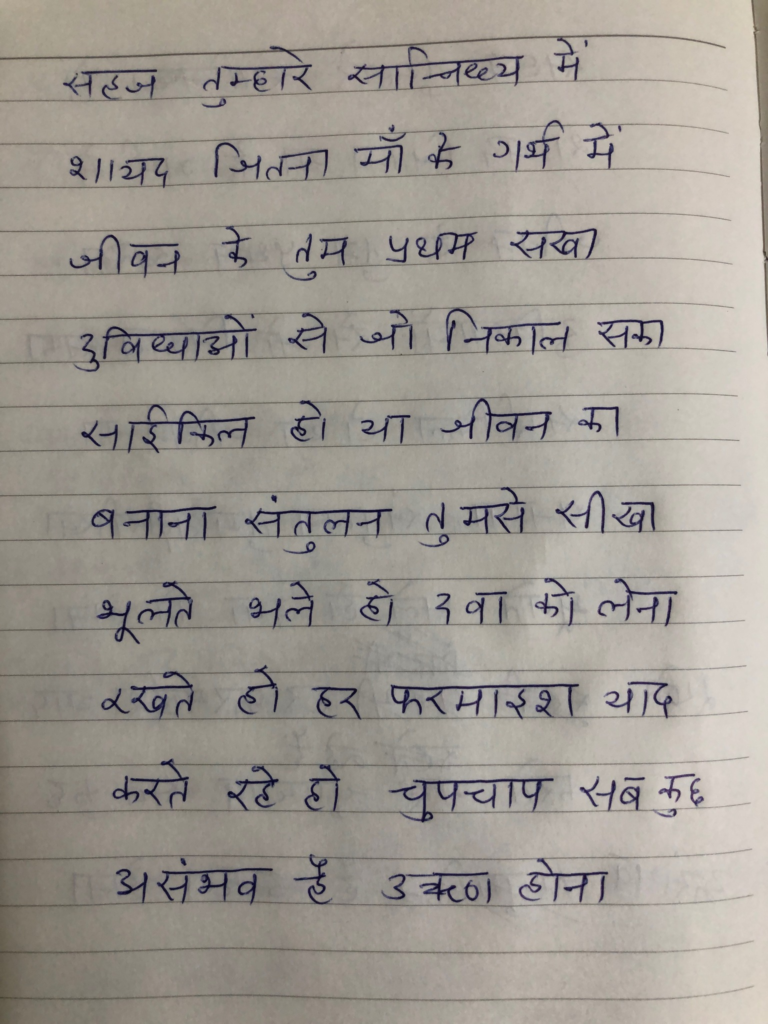 सहज तुम्हारे सान्निध्य में
शायद जितना माँ के गर्भ में
जीवन के तुम प्रथम सखा
दुविधाओं से जो निकाल सका
साईकिल हो या जीवन का
बनाना संतुलन तुमसे सीखा
भूलते भले हो दवा को लेना
रखते हो हर फरमाइश याद
करते रहे हो चुपचाप सब कुछ
असंभव है उऋण होना